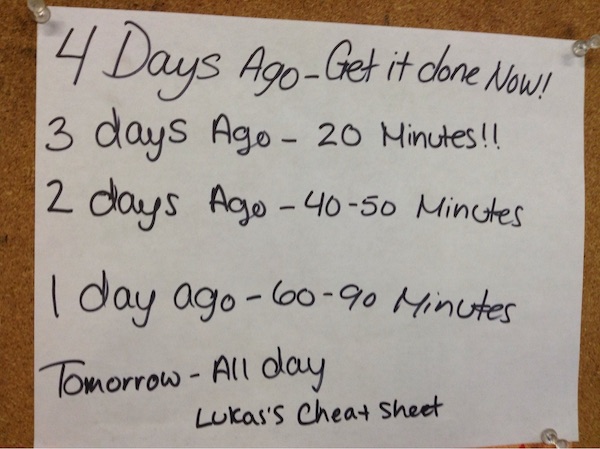 4 Days Ago - Get it done Now!
3 days Ago - 20 Minutes!!
2 days Ago - 40-50 Minutes
1 day ago - 60-90 Minutes
Tomorrow - All day
Lukas's Cheat Sheet